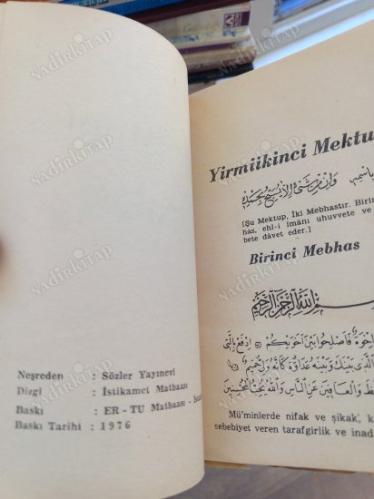 Neşreden : Sözler Yayınevi
Dizgi : İstikamet Matbaası
Baskı : ER - TU Matbaası -
Baskı Tarihi : 1976
Yirmiikinci Mektu
باسمه وَاِنْ مِنْ شَىْءٍ اِلَّا يُسَبِّحُ بِحَمْدِهِ
[Şu Mektup, İki Mebhastır. Birin
has, ehl-i imânı uhuvvete ve
bete dâvet eder.]
Birinci Mebhas
بِسْمِ اللّٰهِ الرَّحْمٰنِ الرَّحِيمِ
اِخْوَةٌ فَاَصْلِحُوا بَيْنَ اَخَوَيْكُمْ ❊ اِدْفَعْ بِالَّتِى
الَّذِى بَيْنَكَ وَبَيْنَهُ عَدَاوَةٌ كَاَنَّهُ وَلِىٌّ حَمِيمٌ ❊
وَالْعَافِينَ عَنِ النَّاسِ وَاللّٰهُ يُحِبُّ الْمُحْسِنِينَ
Mü'minlerde nifak ve şikak, k
sebebiyet veren tarafgirlik ve inad
nadirkitap